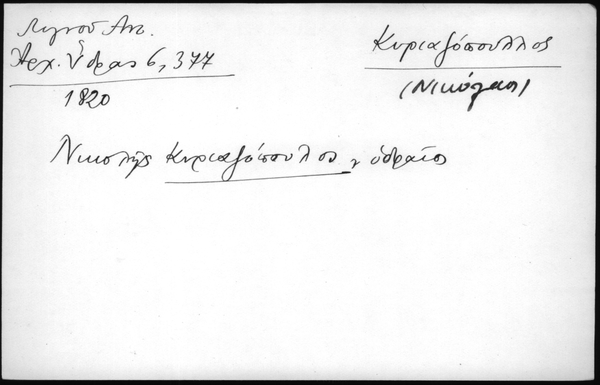 Λιγνοῦ Ἀντ.
Ἀρχ. Ὕδρας 6, 377
1820
Κυριαζόπουλλος
(Νικόλαος)
Νικολῆς Κυριαζόπουλου, ὑδραῖος